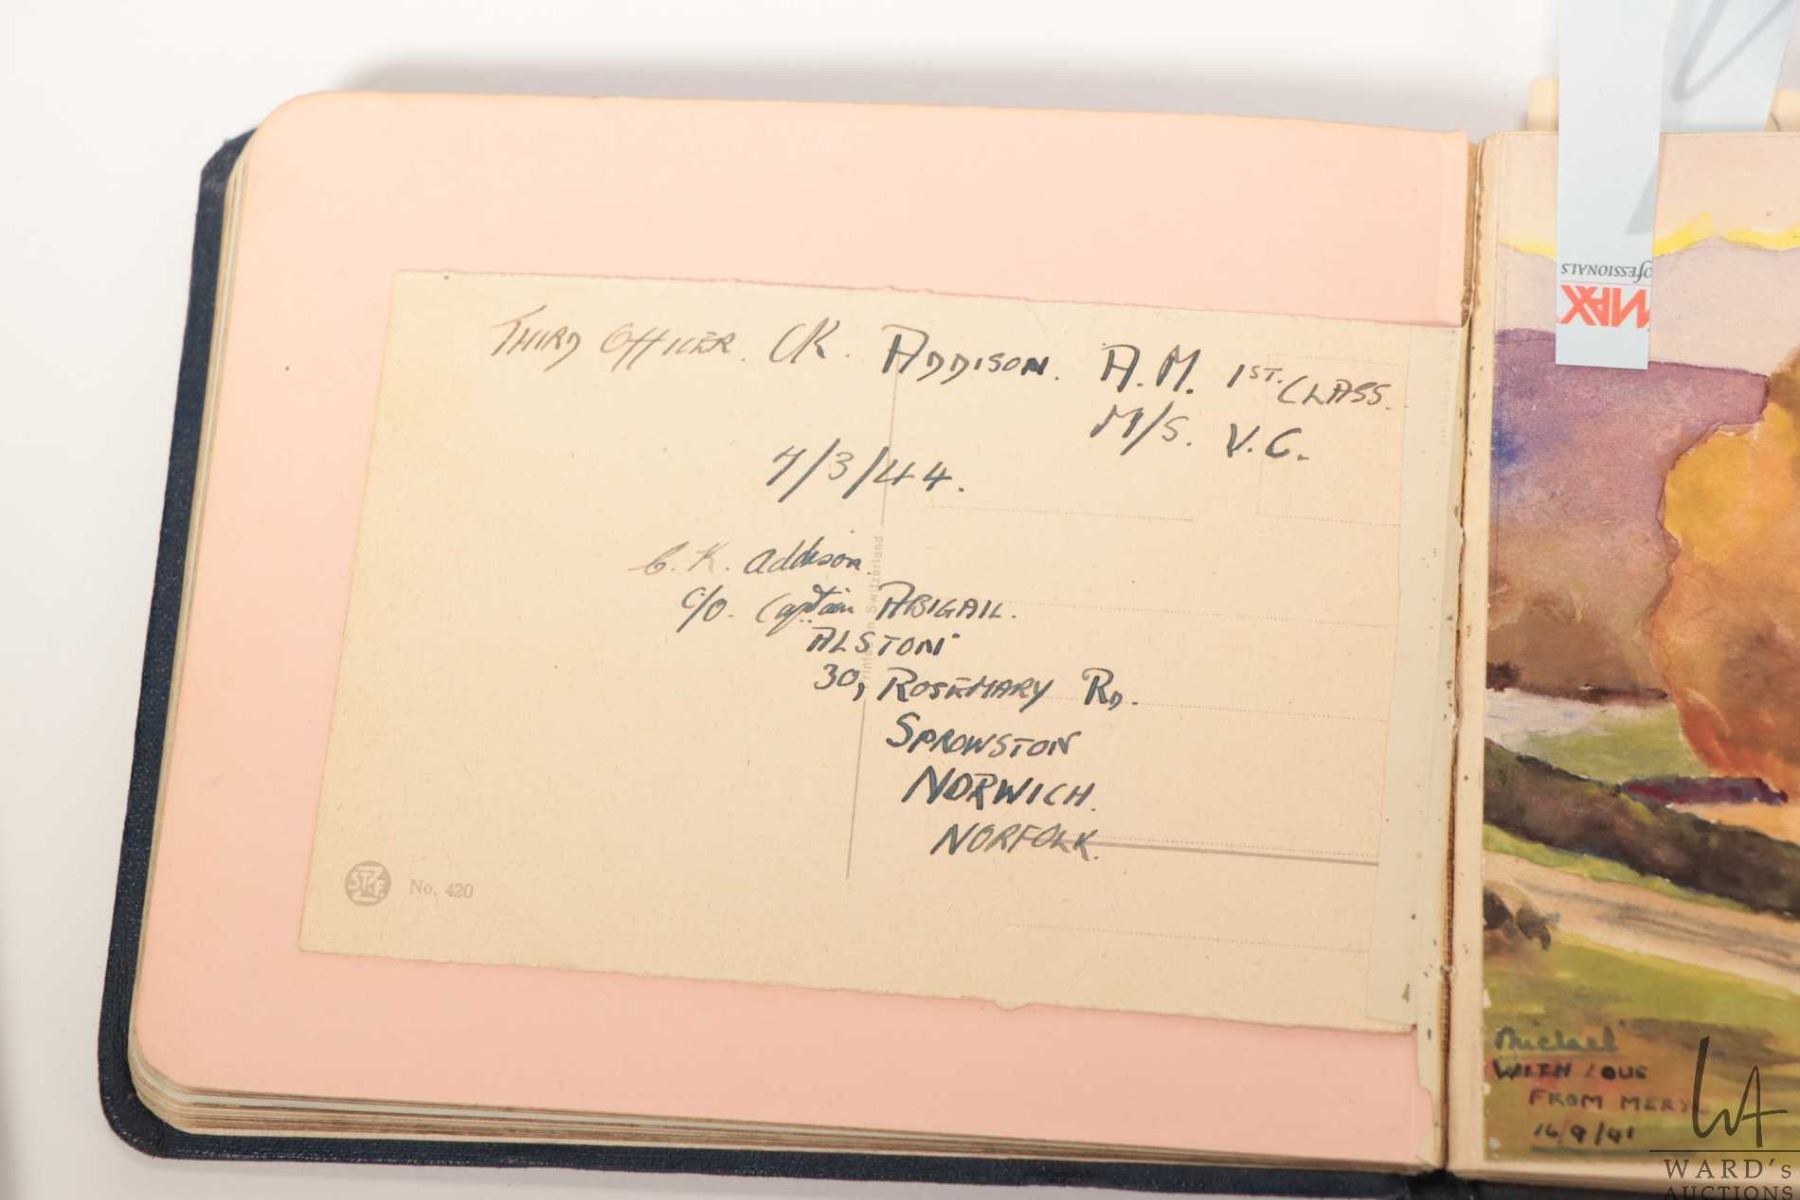 THIRD OFFICER. CK. ADDISON. A.M. 1ST. CLASS.
M/S. V.C.
7/3/44.
C. K. Addison.
C/O. Captain ABIGAIL.
ALSTON
30, ROSEMARY RD.
SPROWSTON
NORWICH.
NORFOLK.
Printed in Switzerland
STZF No. 420
ofessionals
MAX
Michael
WITH LOVE
FROM MERY
16/9/41
WA
WARD's
AUCTIONS